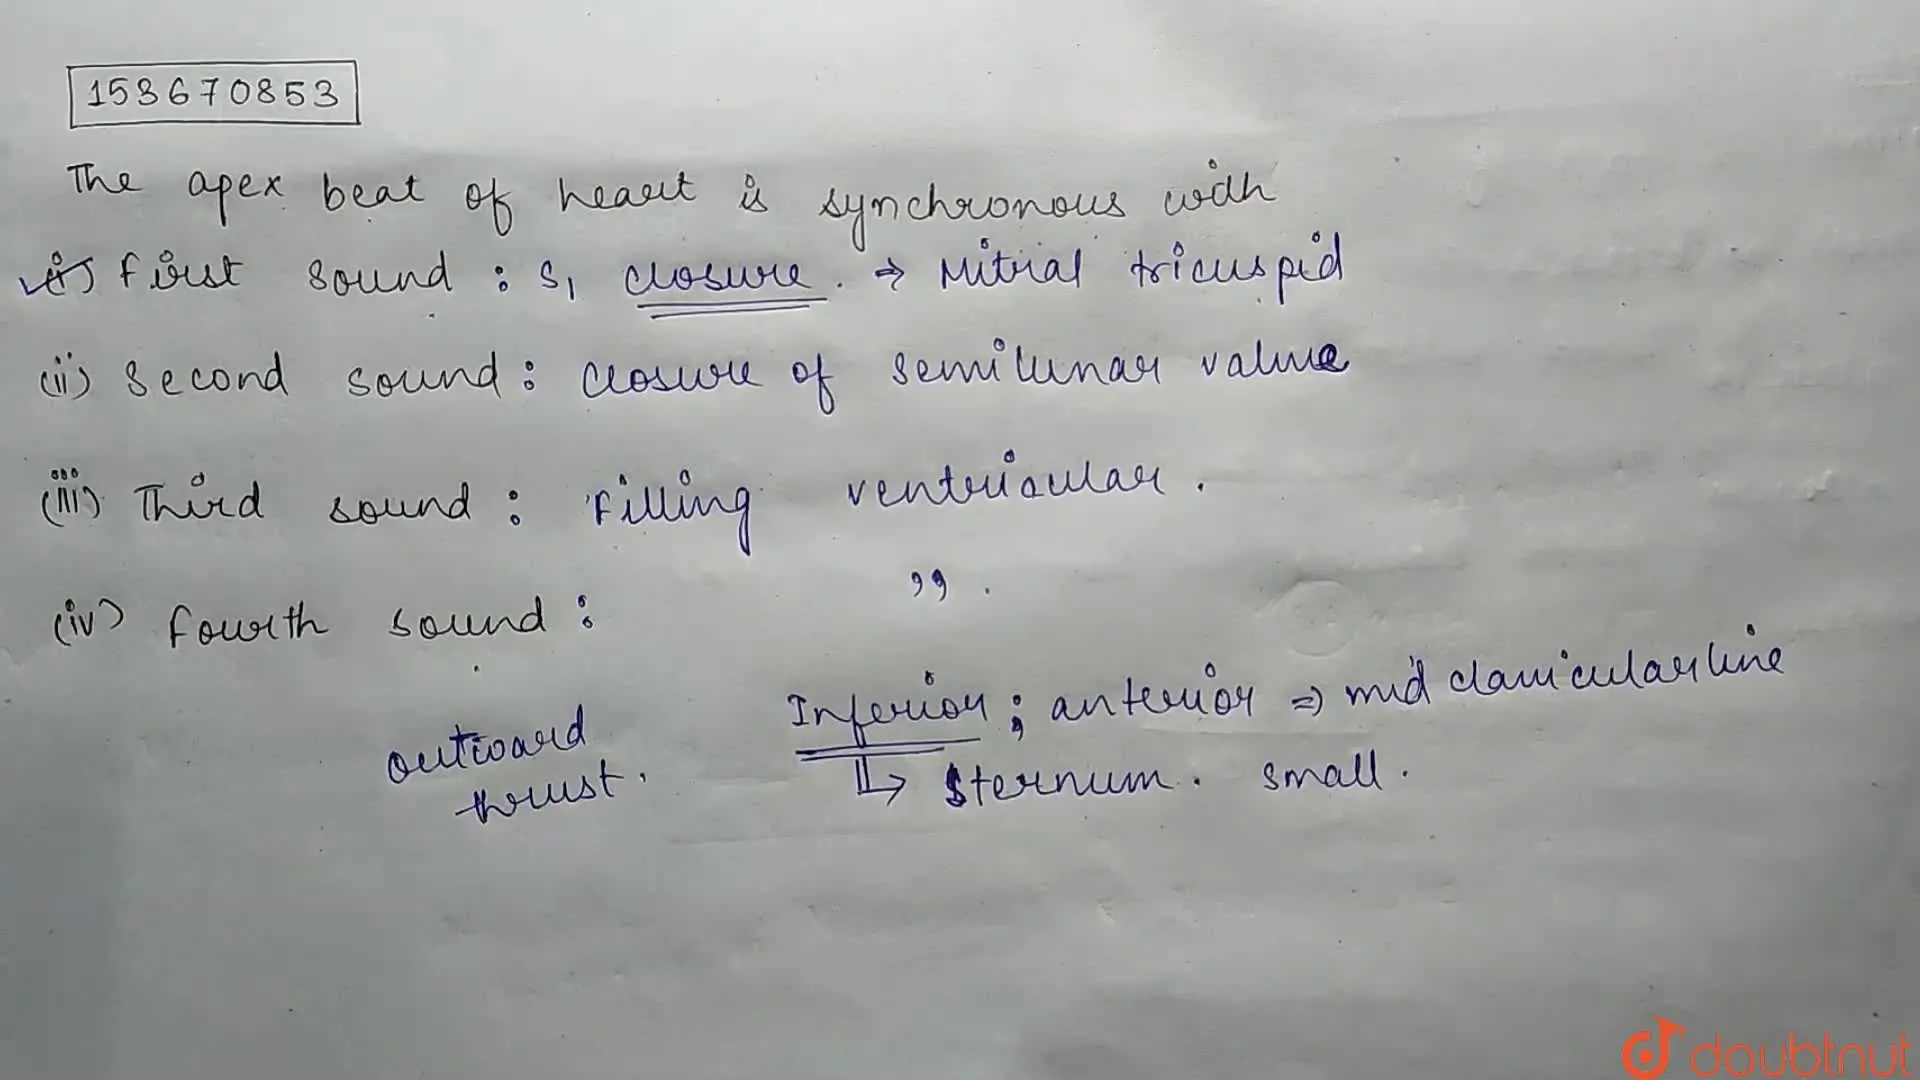 153670853
The apex beat of heart is synchronous with
(i) First sound : S1 closure. ⇒ Mitral tricuspid
(ii) Second sound : closure of semilunar valve
(iii) Third sound : Filling ventricular.
(iv) Fourth sound : ,, .
outward thrust.
Inferior ; anterior ⇒ mid clavicular line
↳ sternum. small.
doubtnut